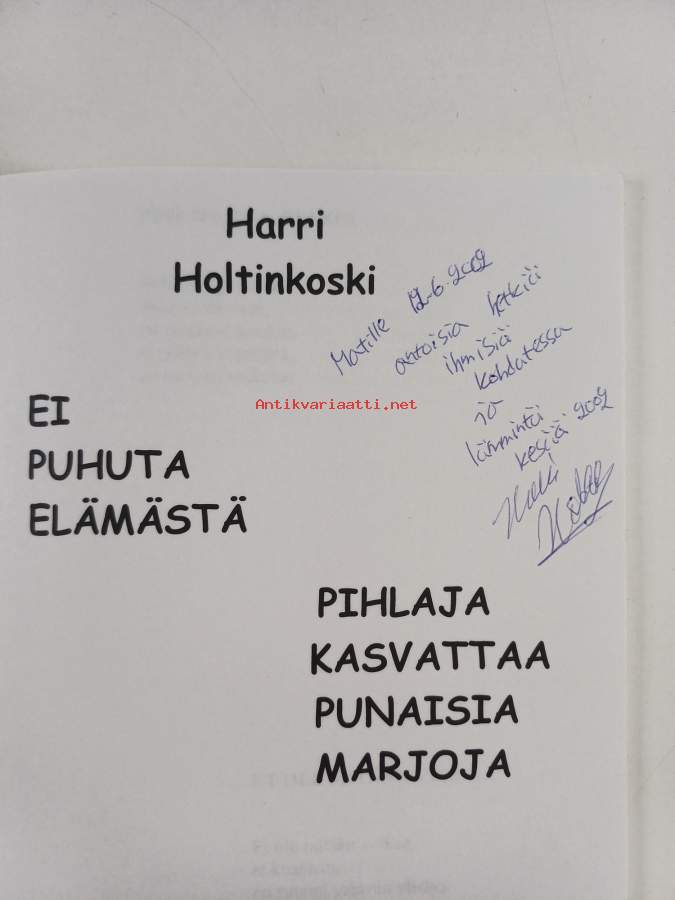 Harri
Holtinkoski
Matille 12.6.2002
antoisia hetkiä
ihmisiä
kohdatessa
ja
lämmintä
kesää 2002
Harri
EI
PUHUTA
ELÄMÄSTÄ
Antikvariaatti.net
PIHLAJA
KASVATTAA
PUNAISIA
MARJOJA